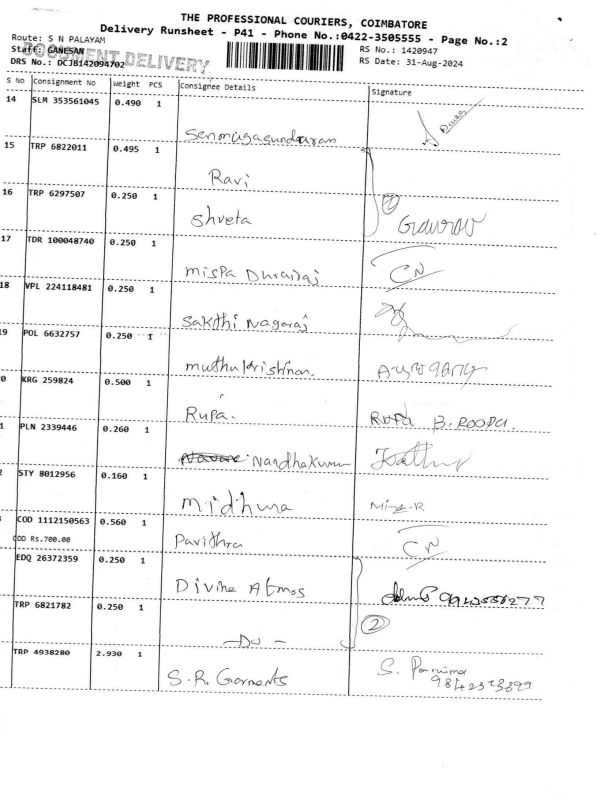 THE PROFESSIONAL COURIERS, COIMBATORE
Delivery Runsheet - P41 - Phone No.:0422-3505555 - Page No.:2
Route: S N PALAYAM
Staff: GANESAN
RS No.: 1420947
DOCUMENT DELIVERY
DRS No.: DCJB142094702
RS Date: 31-Aug-2024
S No Consignment No Weight PCS Consignee Details Signature
14 SLM 353561045 0.490 1
Senmugasundaram
15 TRP 6822011 0.495 1
Ravi
16 TRP 6297507 0.250 1
Shveta Gaurav
17 TDR 100048740 0.250 1
Mispa Dhrairaj CN
18 VPL 224118481 0.250 1
Sakthi Nagaraj
19 POL 6632757 0.250 1
muthukrishnan.
0 KRG 259824 0.500 1
Rupa. Rupa B. ROOPA.
1 PLN 2339446 0.260 1
Nandhakumar
2 STY 8012956 0.160 1
Midhuna
COD 1112150563 0.560 1
COD Rs.700.00 Pavithra CN
EDQ 26372359 0.250 1
Divine Atmos
TRP 6821782 0.250 1 2
-Do-
TRP 4938280 2.930 1
S.R. Garments S.